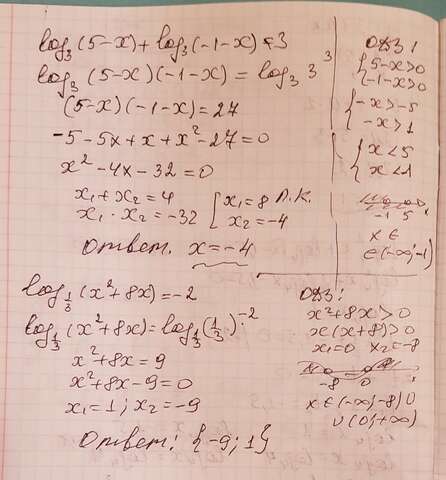 log₃(5-x)+log₃(-1-x)=3
log₃(5-x)(-1-x)=log₃ 3³
(5-x)(-1-x)=27
-5-5x+x+x²-27=0
x²-4x-32=0
x₁+x₂=4
x₁·x₂=-32
[x₁=8 П.К.
x₂=-4
Ответ. x=-4
ОДЗ:
{5-x>0
-1-x>0
{-x>-5
-x>1
{x<5
x<1
-1 5
x∈
∈(-∞;-1)
log⅓(x²+8x)=-2
log⅓(x²+8x)=log⅓(⅓)⁻²
x²+8x=9
x²+8x-9=0
x₁=1; x₂=-9
Ответ: {-9; 1}
ОДЗ:
x²+8x>0
x(x+8)>0
x₁=0 x₂=-8
-8 0
x∈(-∞;-8)U
U(0;+∞)